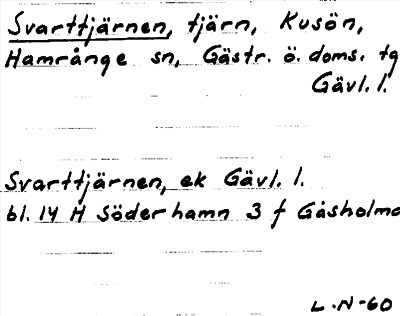 Svarttjärnen, tjärn, Kusön,
Hamrånge sn, Gästr. ö. doms. tg
Gävl. l.
Svarttjärnen, ek Gävl. l.
bl. 14 H Söderhamn 3 f Gåsholma
L.N-60